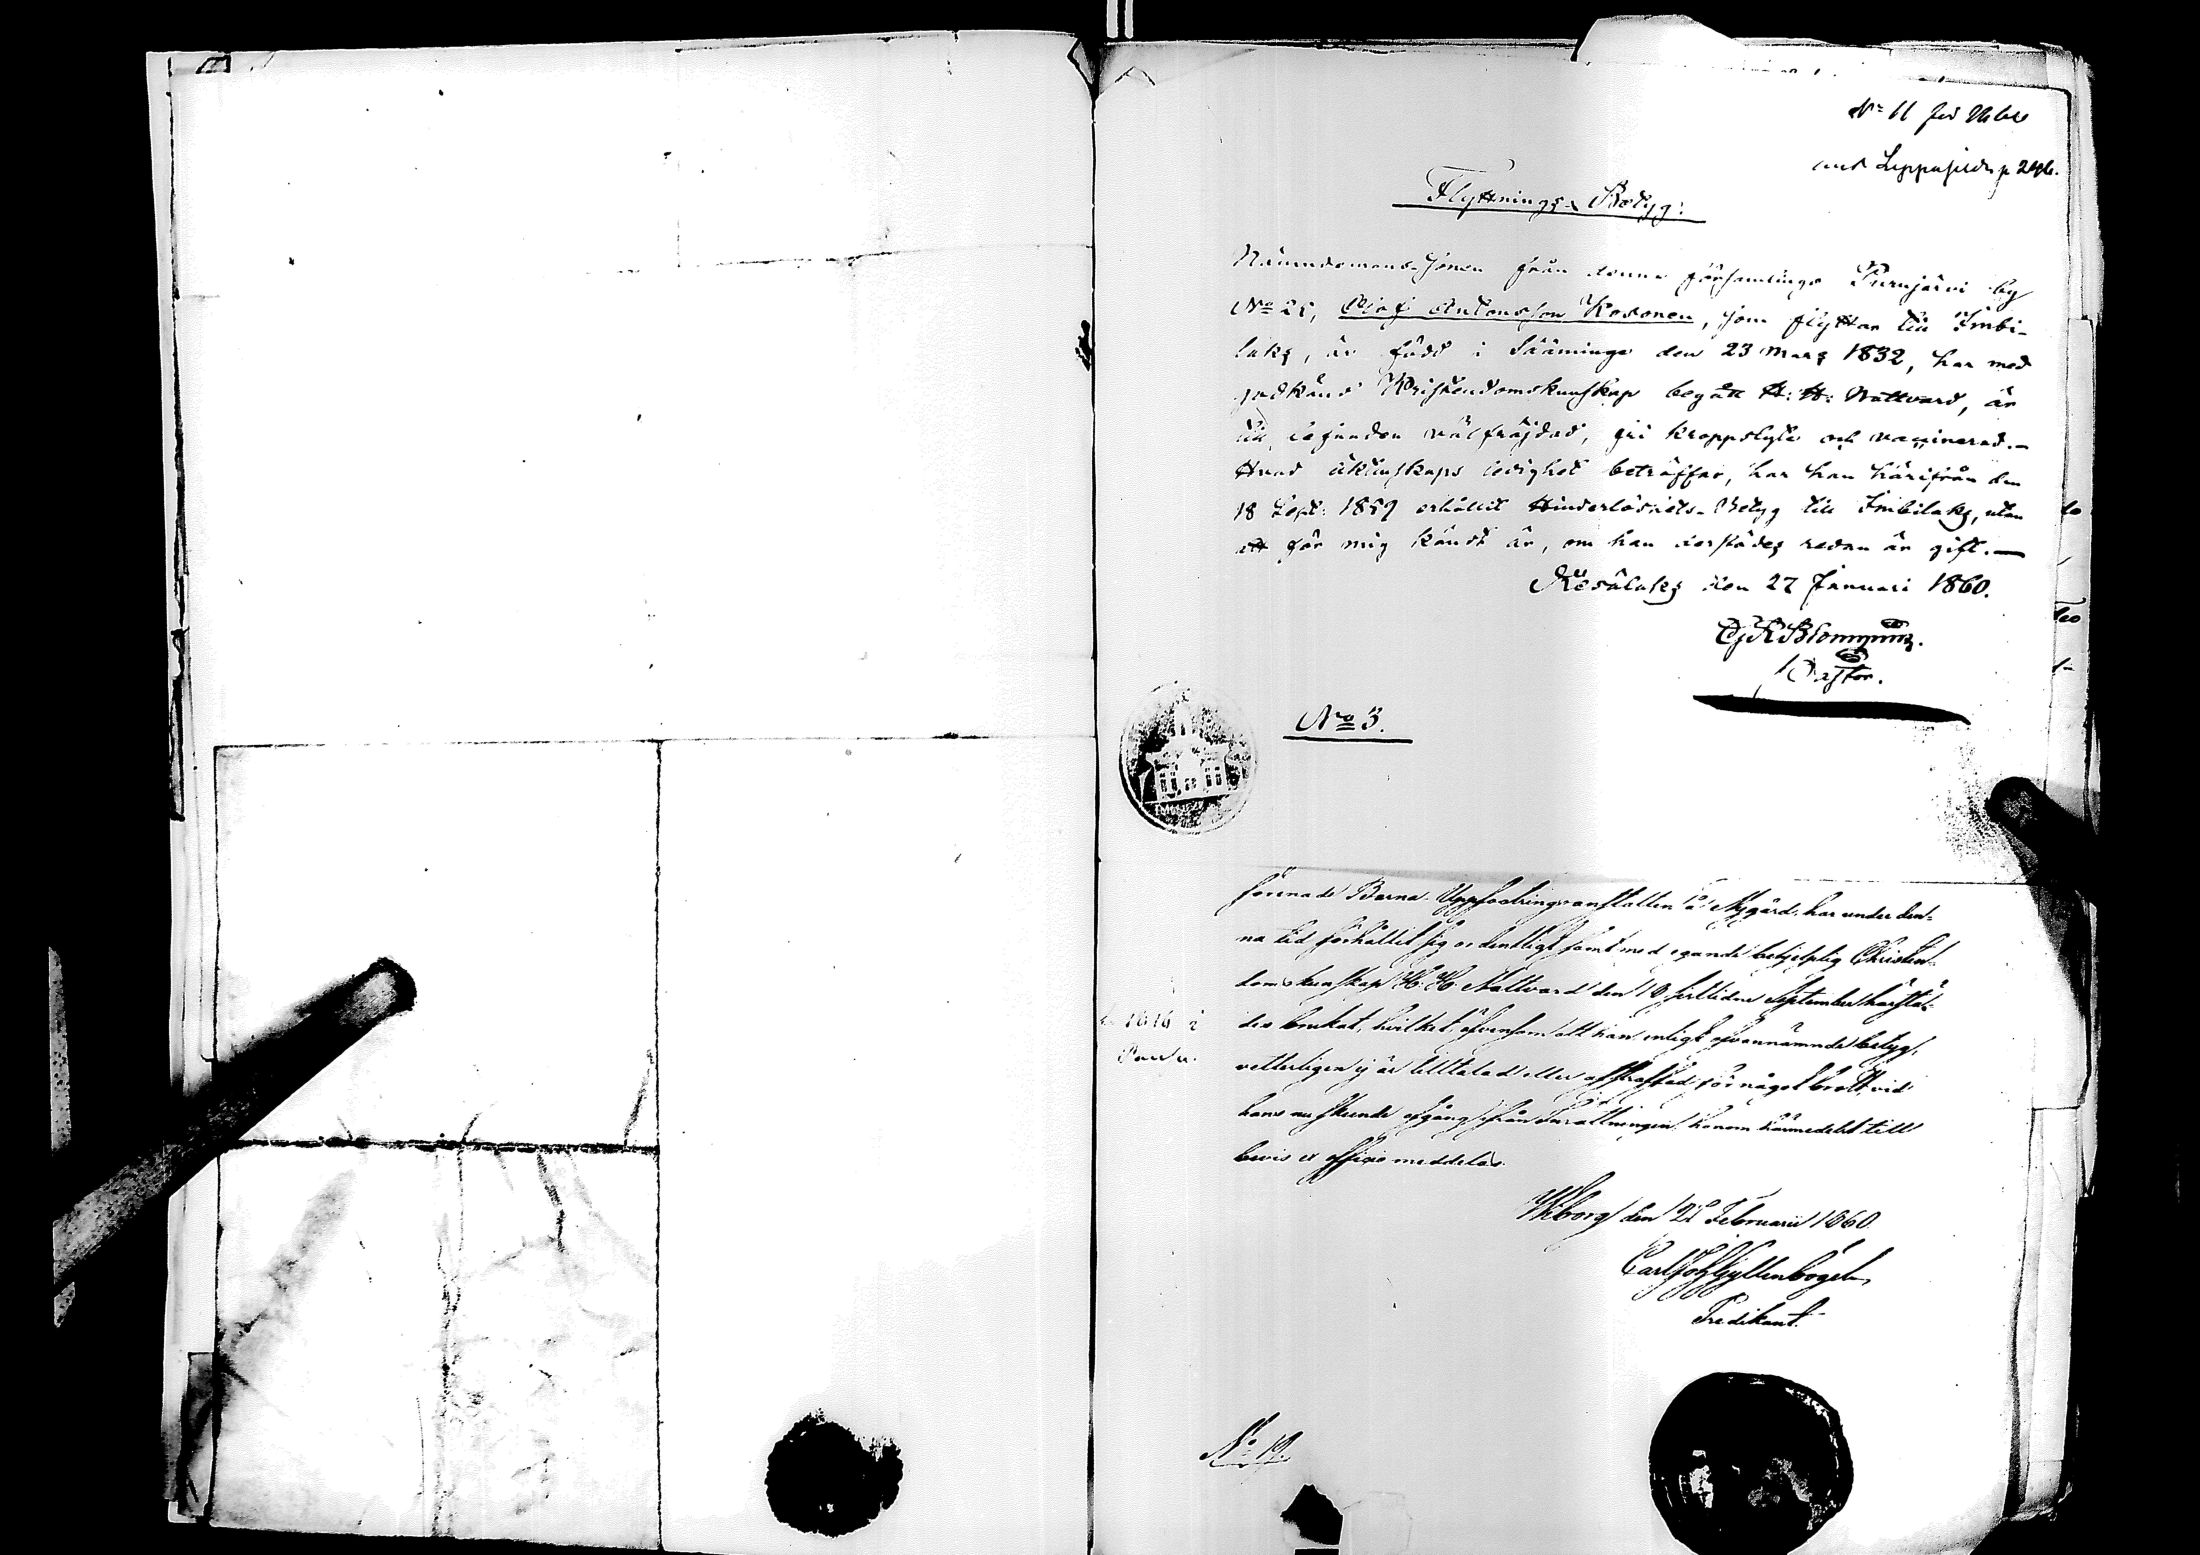 Nr 11
Leppäsilda p 246.
Flyttnings-Betyg:
Nämndemans-Sonen från denna församlings Purujärvi by
No 25, Olof Antonsson Kosonen, som flyttar till Imbi-
laks, är född i Sääminge den 23 Mars 1832, har med
godkänd Kristendomskunskap begått H: H: Nattvard, är
till lefnaden välfräjdad, fri kroppslyte och vaccinerad.-
Hvad äktenskaps ledighet beträffar, har han härifrån den
18 Sept: 1859 erhållit Hinderlöshets-Betyg till Imbilaks, utan
att för mig kändt är, om han derstädes redan är gift.-
Kesälaks den 27 Januari 1860.
Pastor.
No 3.
förenade Barna-Uppfostringsanstalten å Nygård, har under den-
na tid förhållit sig ordentligt samt med egande behjelplig Christen-
domskunskap H. H. Nattvard den 10 sistlidne September härstä-
des brukat, hvilket, äfvensom att han enligt ofvannämnde betyg,
vetterligen ej är tilltalad eller affstraffad för något brott, vid
hans nu skeende afgång från Inrättningen honom härmedelst till
bevis ex officio meddelas.
Wiborg den 21 Februarii 1860
Carl Joh Gyllenbögel
Predikant.
No 19.